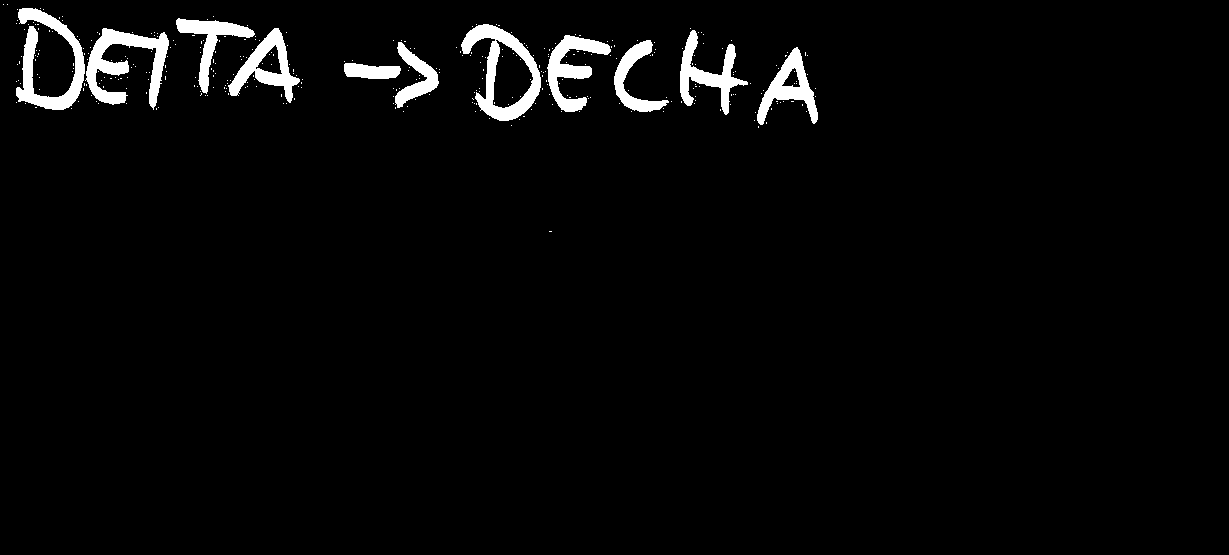 DEITA → DECHA